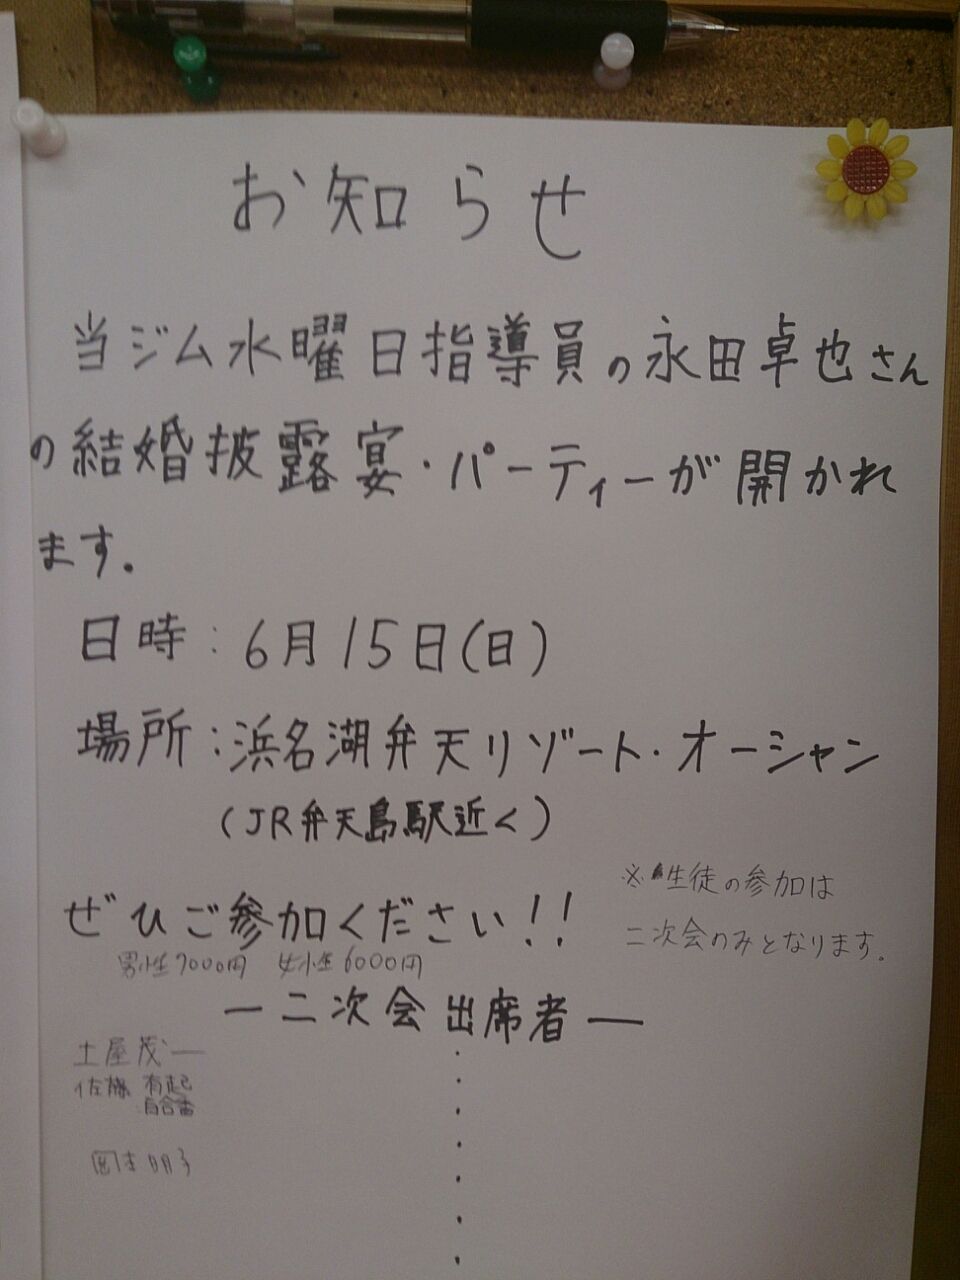 お知らせ
当ジム水曜日指導員の永田卓也さん
の結婚披露宴・パーティーが開かれ
ます。
日時：6月15日(日)
場所：浜名湖弁天リゾート・オーシャン
(JR弁天島駅近く)
※生徒の参加は
二次会のみとなります。
ぜひご参加ください!!
男性7000円 女性6000円
ー二次会出席者ー
土屋茂一
佐藤 有起
岡本明子